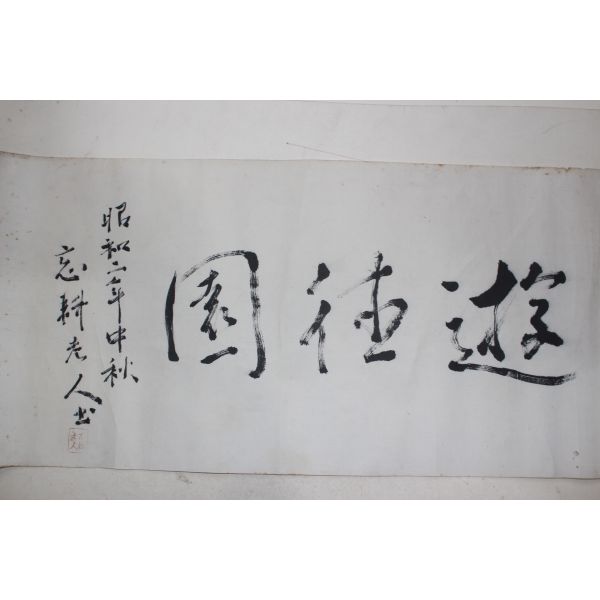 遊徳園
昭和二年中秋
忘耕老人書